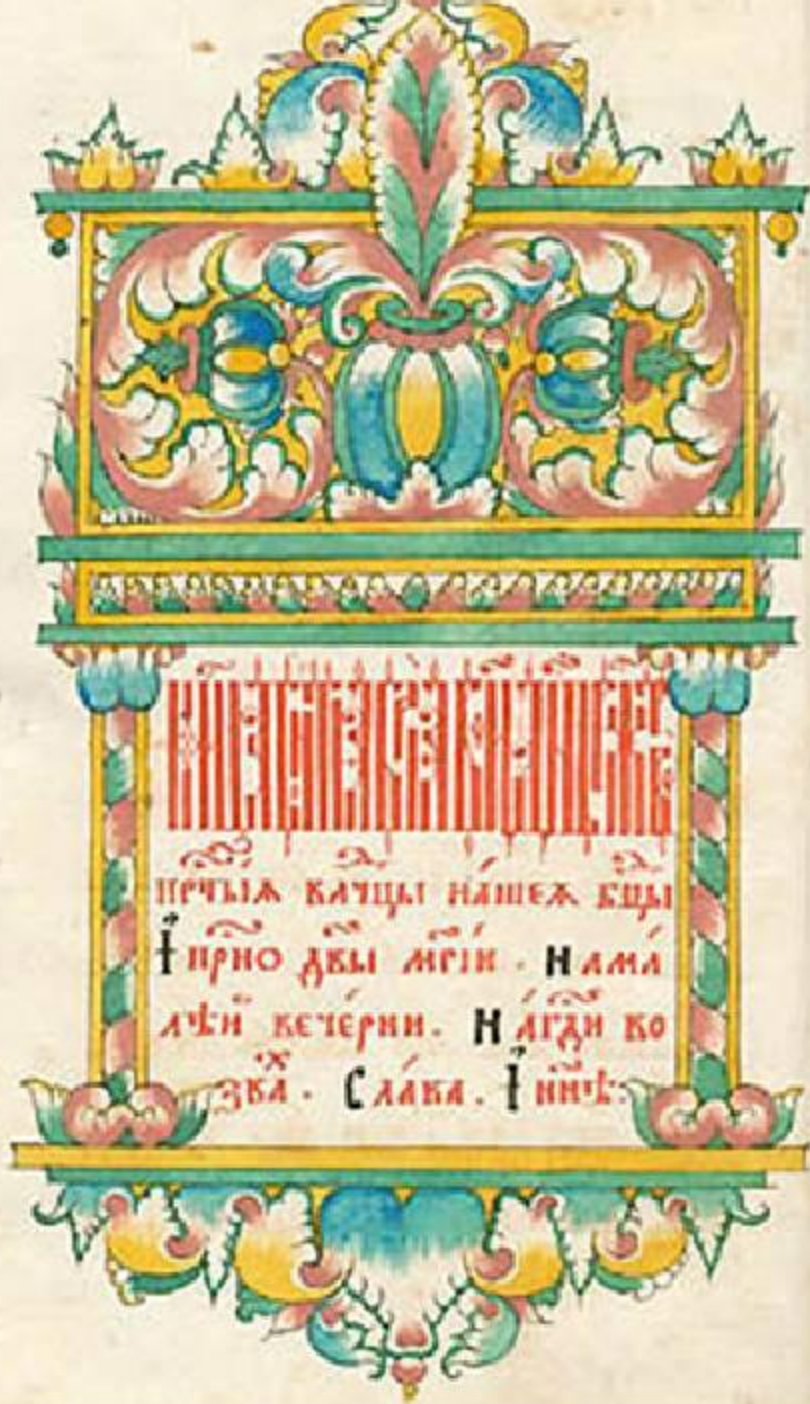 прⷭ҇чы́ѧ влⷣчцы на́шеѧ бц҃ы
І҆ прⷭ҇но дв҃ы мр҃іи . На ма́
лѣй вече́рни . На́ гдⷭ҇и во
зва́ⷯ . Сла́ва . І҆ нн҃ѣ :